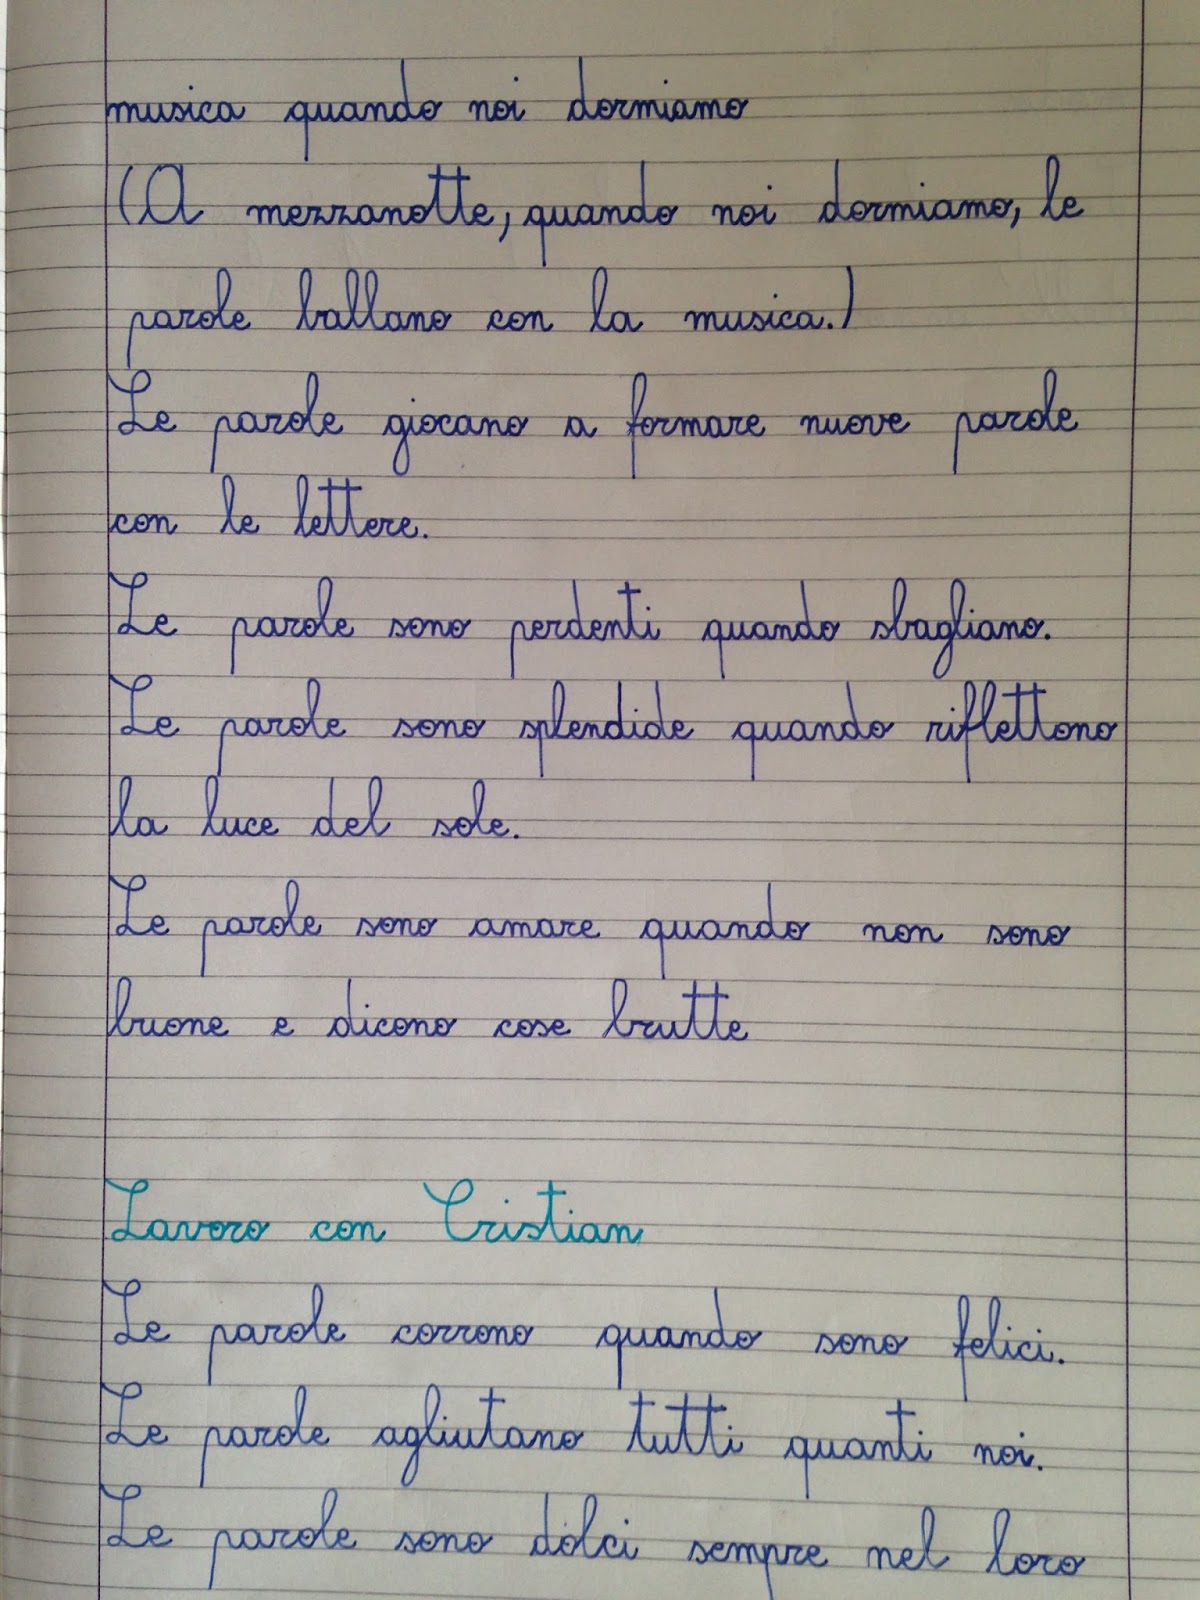 musica quando noi dormiamo
(A mezzanotte, quando noi dormiamo, le
parole ballano con la musica.)
Le parole giocano a formare nuove parole
con le lettere.
Le parole sono perdenti quando sbagliano.
Le parole sono splendide quando riflettono
la luce del sole.
Le parole sono amare quando non sono
buone e dicono cose brutte
Lavoro con Cristian
Le parole corrono quando sono felici.
Le parole agliutano tutti quanti noi.
Le parole sono dolci sempre nel loro